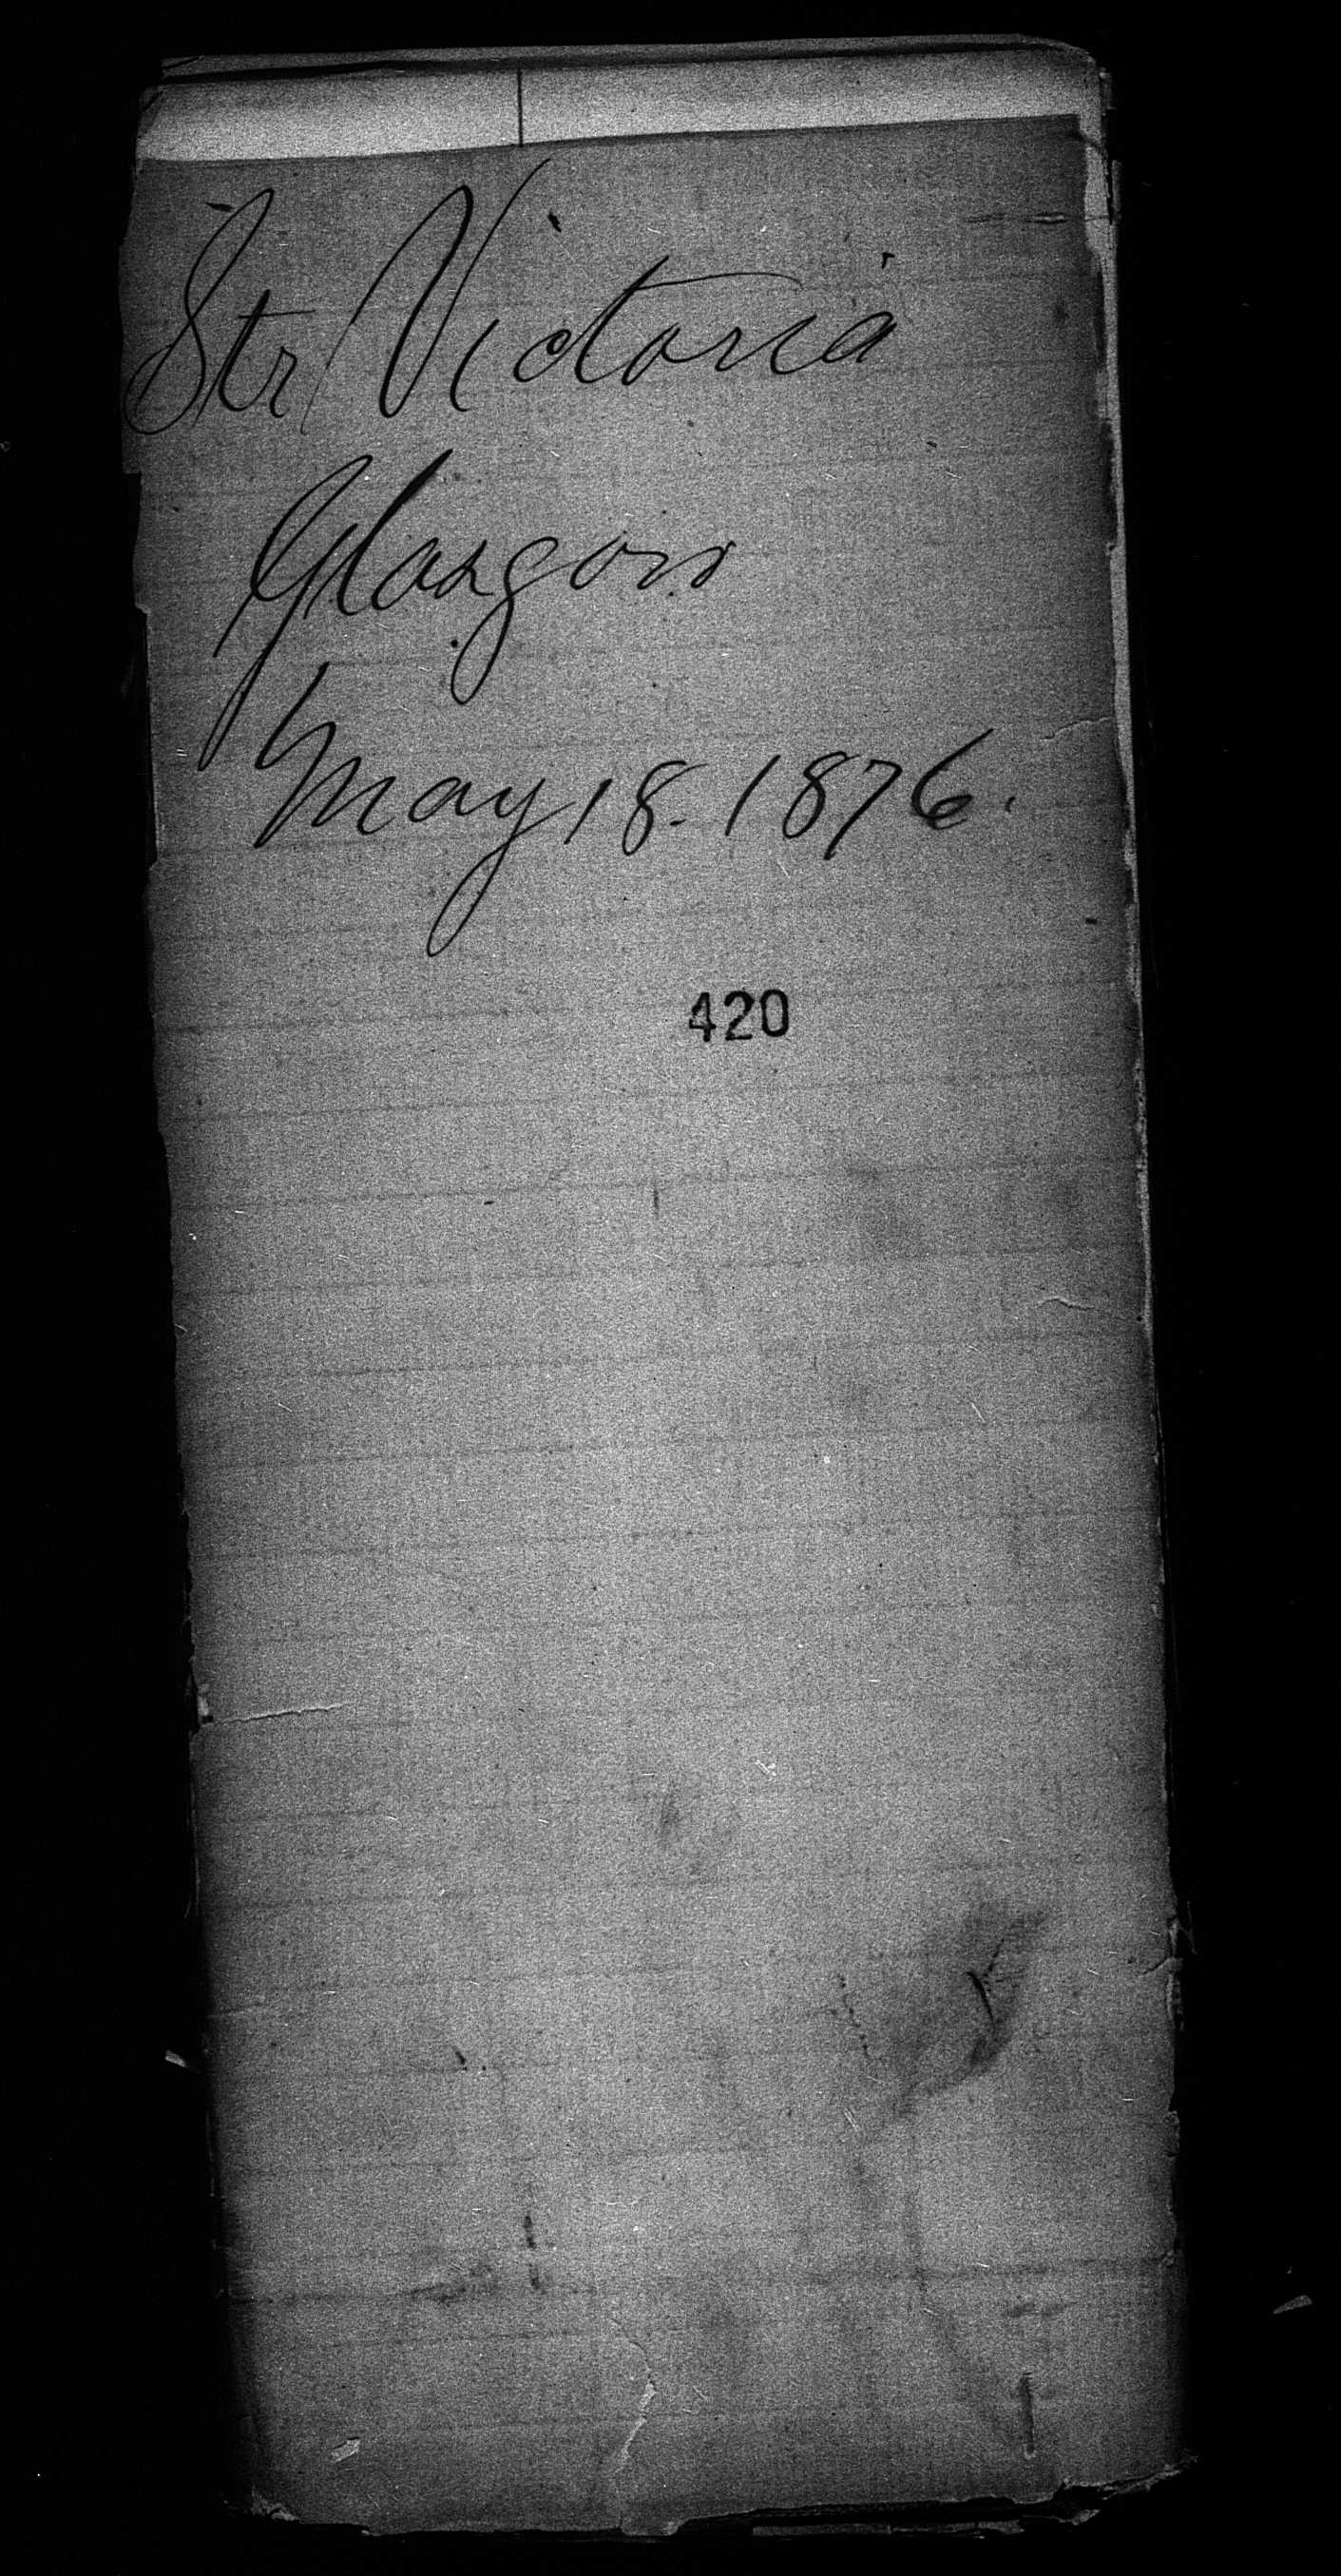 Str Victoria
Glasgow
May 18. 1876.
420